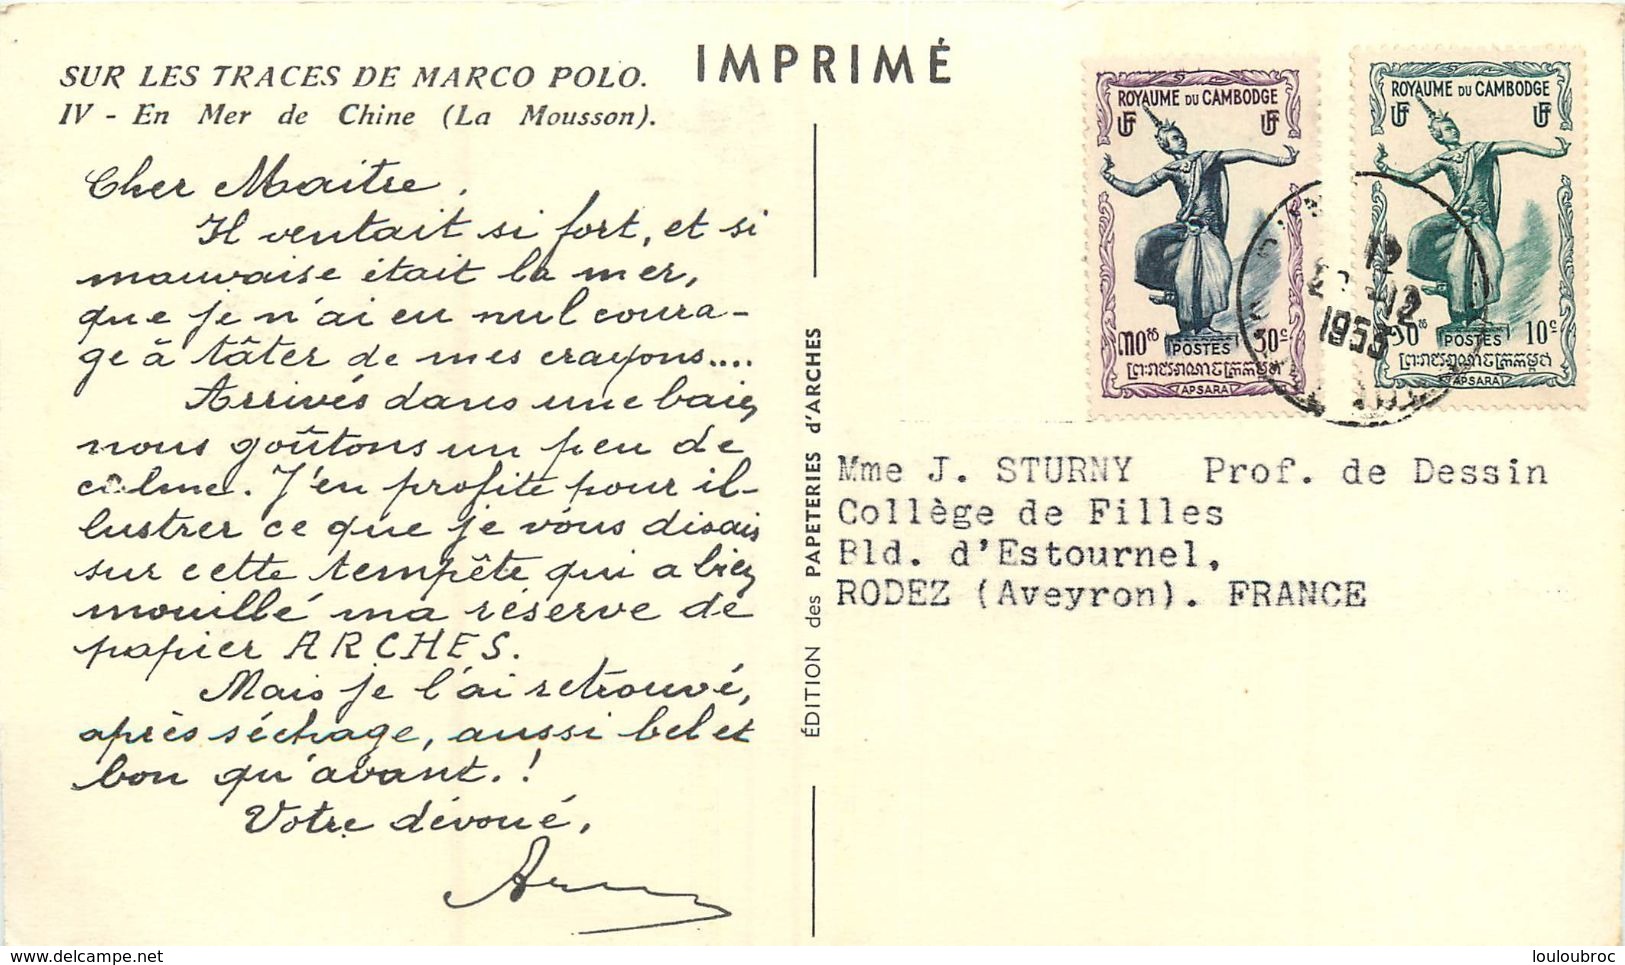 SUR LES TRACES DE MARCO POLO.
IV - En Mer de Chine (La Mousson).
Cher Maitre.
Il ventait si fort, et si
mauvaise était la mer,
que je n'ai eu nul coura-
ge à tâter de mes crayons....
Arrivés dans une baie,
nous goûtons un peu de
calme. J'en profite pour il-
lustrer ce que je vous disais
sur cette tempête qui a bien
mouillé ma réserve de
papier ARCHES.
Mais je l'ai retrouvé,
après séchage, aussi bel et
bon qu'avant.!
Votre dévoué,
IMPRIMÉ
ÉDITION des PAPETERIES d'ARCHES
ROYAUME DU CAMBODGE
UF UF
30c
POSTES
APSARA
ROYAUME DU CAMBODGE
UF UF
10c
POSTES
APSARA
12
1953
Mme J. STURNY Prof. de Dessin
Collège de Filles
Bld. d'Estournel,
RODEZ (Aveyron). FRANCE
louloubroc